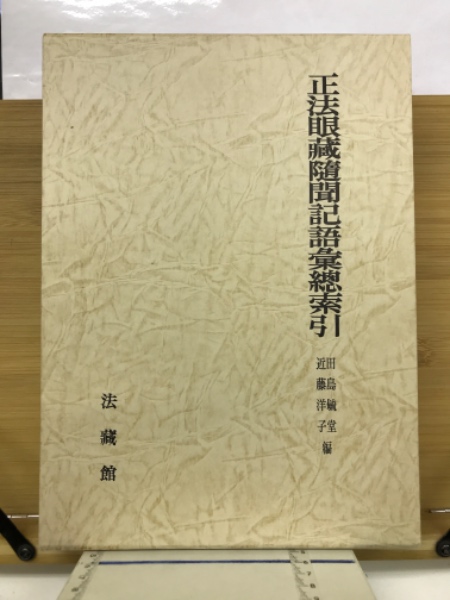 正法眼藏隨聞記語彙總索引
田島毓堂
近藤洋子 編
法藏館